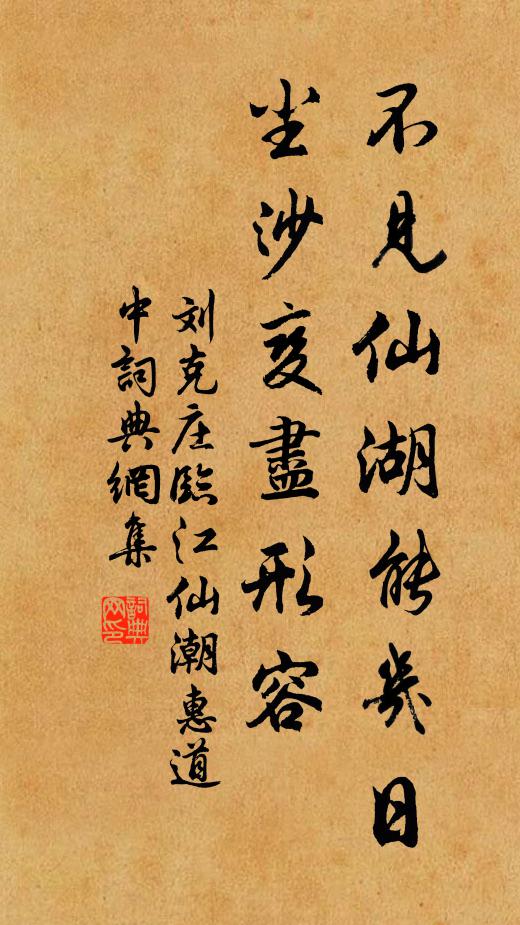 不見仙湖能幾日
尘沙变盡形容
刘克庄臨江仙潮惠道
中詞典網集
詞典网印